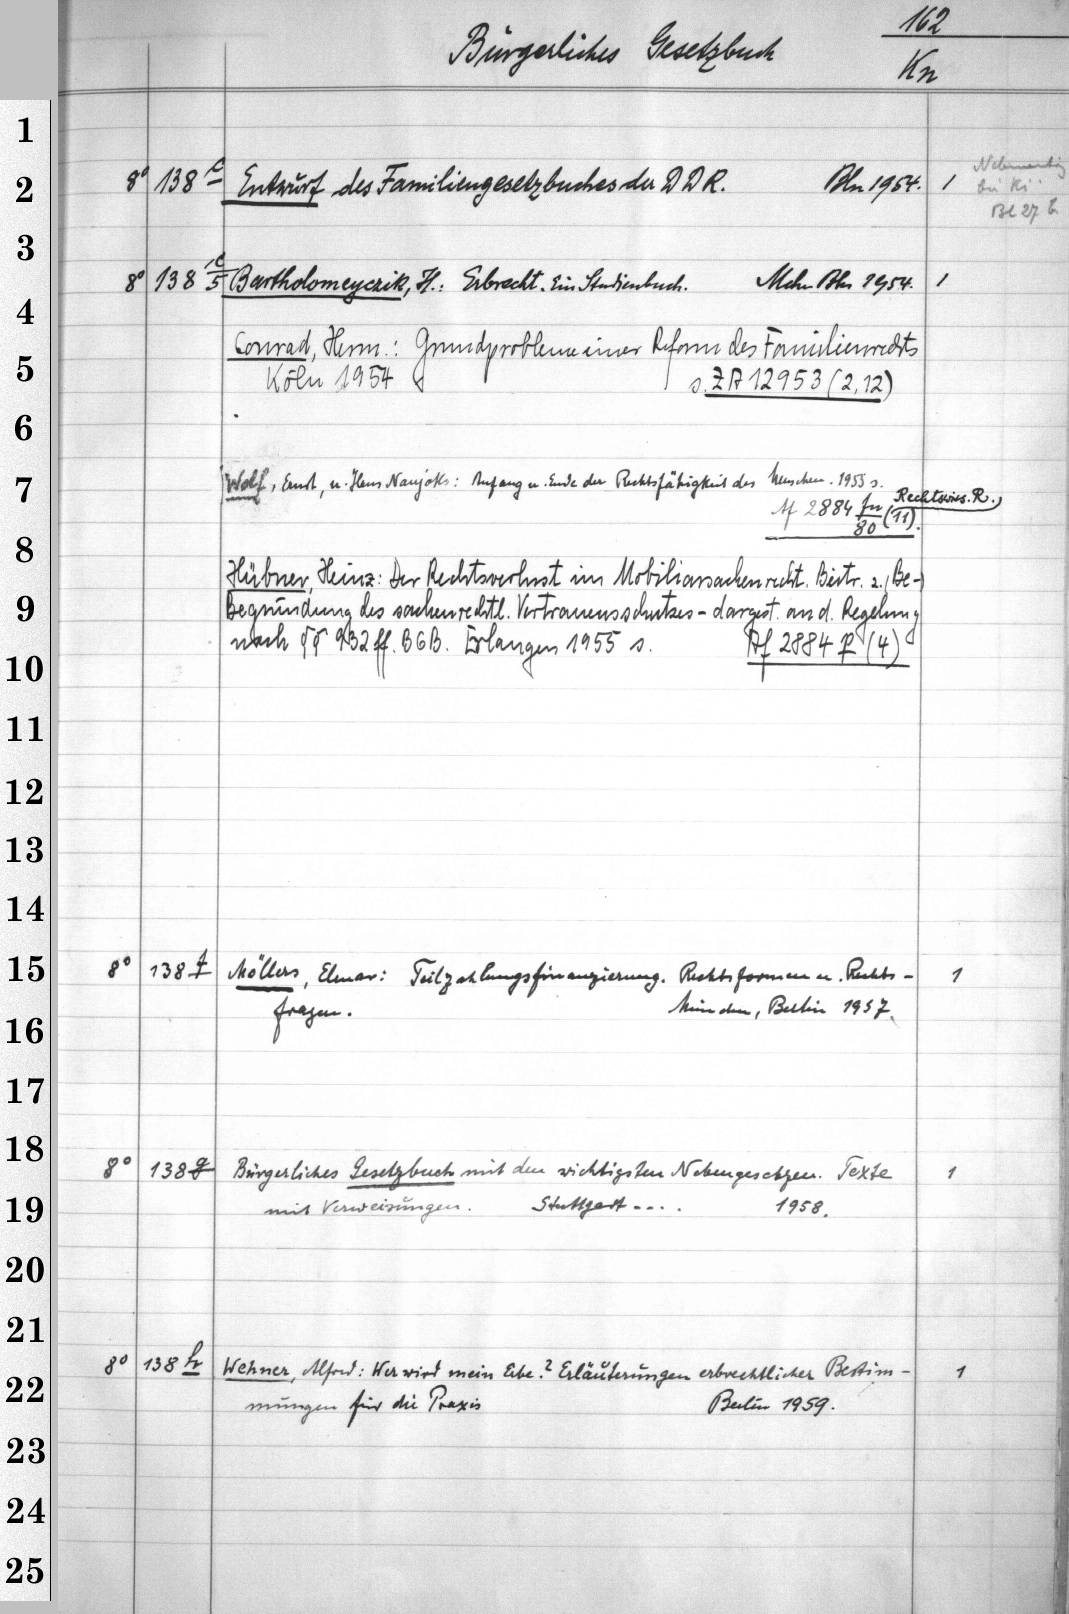 162
Bürgerliches Gesetzbuch
Kn
1
2 8° 138 e Entwurf des Familiengesetzbuches der DDR. Bln 1954. 1
Bl 27 b
3
8° 138 e/5 Bartholomeyczik, H.: Erbrecht. Ein Studienbuch. Mchn Bln 1954. 1
4
Conrad, Herm.: Grundprobleme einer Reform des Familienrechts
5 Köln 1954 s. ZA 12953 (2,12)
6
7 Wolf, Ernst, u. Hans Naujoks: Anfang u. Ende der Rechtsfähigkeit des Menschen. 1955 s.
Af 2884 fu/80 (11). Rechtswiss. R.,
8
Hübner, Heinz: Der Rechtsverlust im Mobiliarsachenrecht. Beitr. z. (Be-)
9 Begründung des sachenrechtl. Vertrauensschutzes - dargest. an d. Regelung
nach §§ 932 ff. BGB. Erlangen 1955 s. Af 2884 p (4)
10
11
12
13
14
15 8° 138 f Möllers, Elmar: Teilzahlungsfinanzierung. Rechtsformen u. Rechts-
1
fragen. München, Berlin 1957.
16
17
18
8° 138 g Bürgerliches Gesetzbuch mit den wichtigsten Nebengesetzen. Texte 1
19 mit Verweisungen. Stuttgart .... 1958.
20
21
8° 138 h Wehner, Alfred: Wer wird mein Erbe? Erläuterungen erbrechtlicher Bestim- 1
22 mungen für die Praxis Berlin 1959.
23
24
25